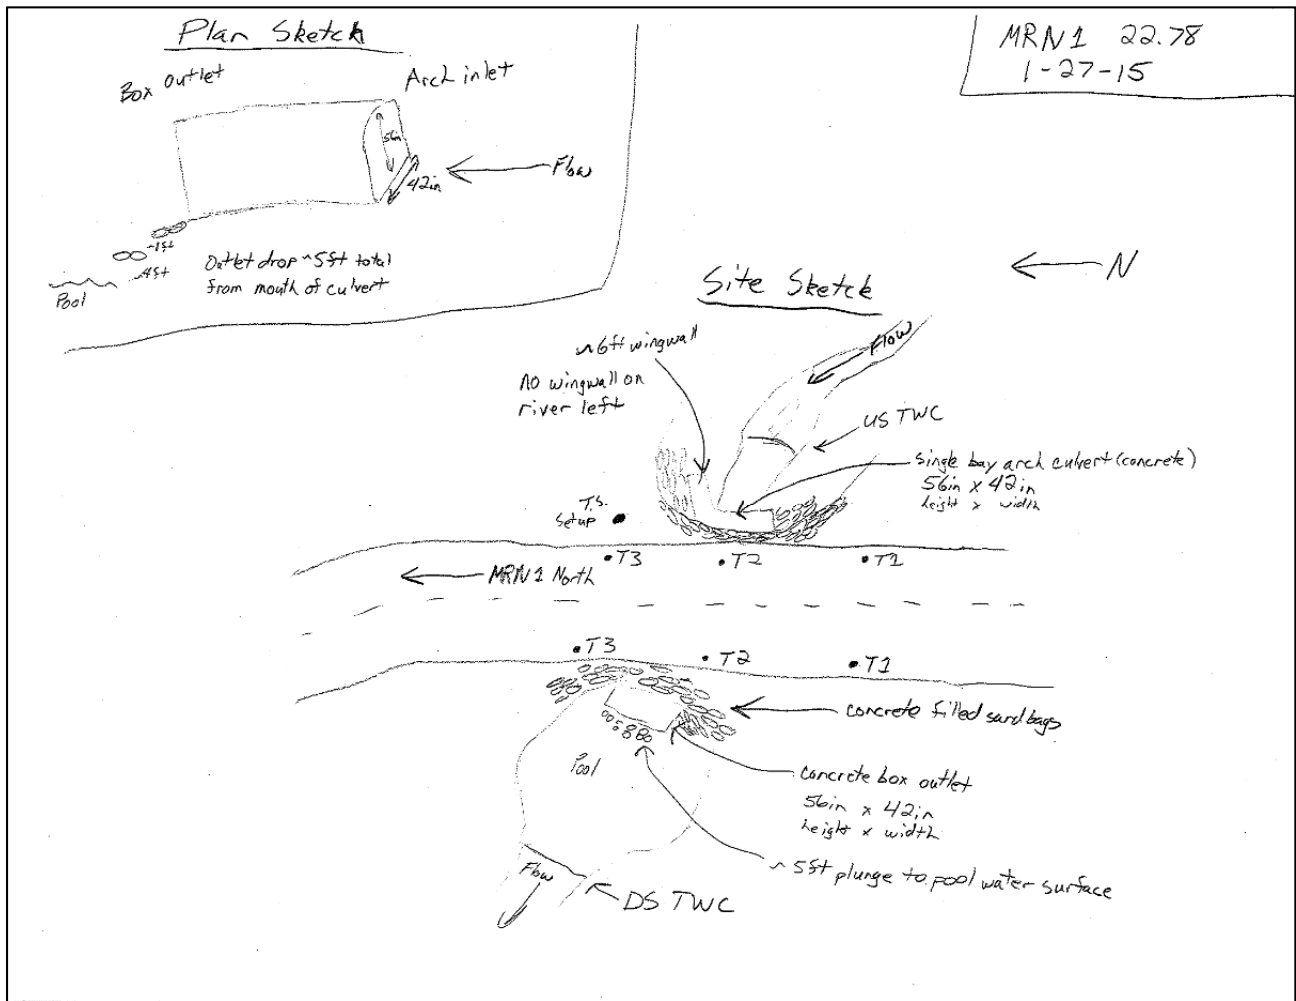 Plan Sketch
MRN1 22.78
1-27-15
Box outlet
Arch inlet
56in
42in
Flow
~1ft
~4ft
Pool
Outlet drop ~5ft total
from mouth of culvert
N
Site Sketch
~6ft wingwall
NO wingwall on
river left
Flow
US TWC
single bay arch culvert (concrete)
56in x 42in
height x width
T.S.
Setup
T3
T2
T1
MRN1 North
T3
T2
T1
concrete filled sandbags
Pool
concrete box outlet
56in x 42in
height x width
~5ft plunge to pool water surface
Flow
DS TWC